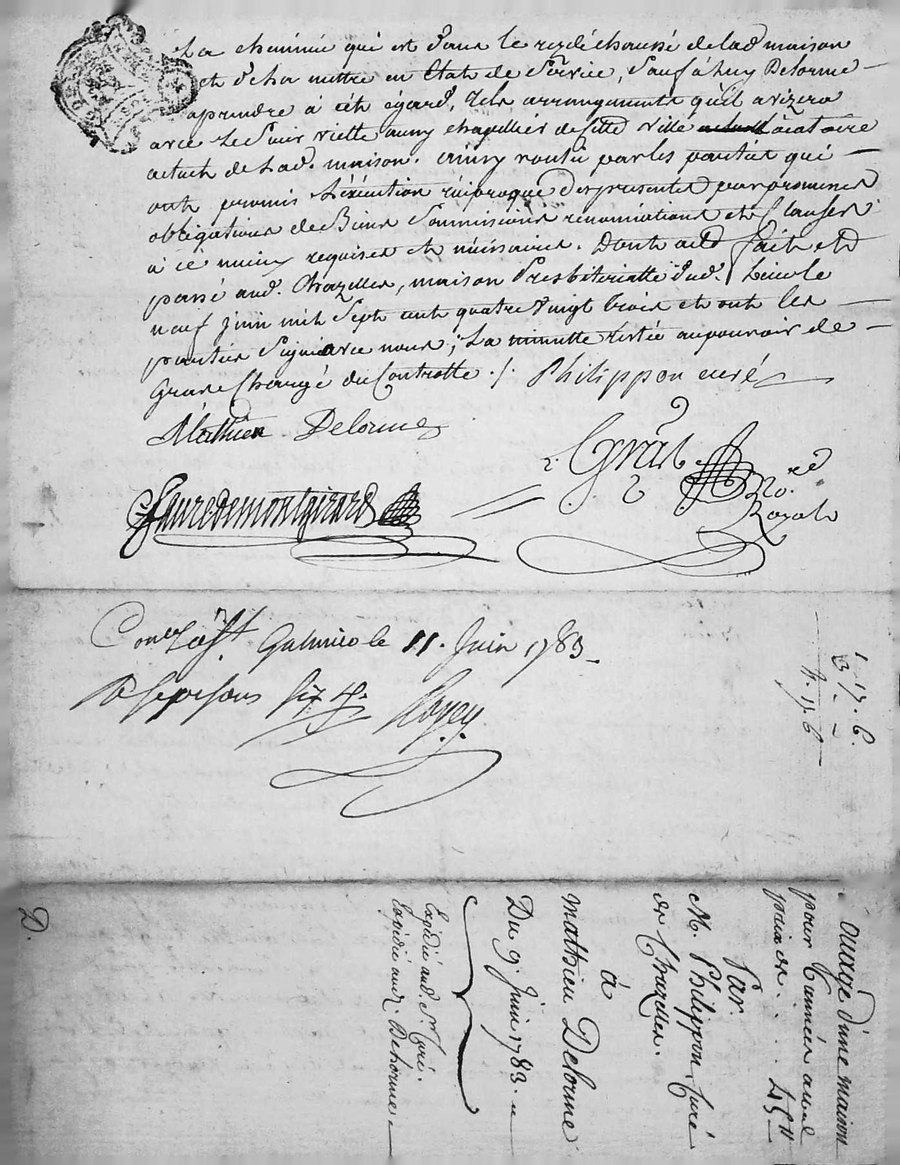 La cheminée qui est dans le rezdéchaussé de lad. maison
et d'la mettre en état de service, sauf à luy Delorme
aprendre à cét égard, tels arrangements qu'il avizera
avec le sieur viette auny chapellier de cette ville locataire
actuel de lad. maison. ainsy voulu par les parties qui
ont promis l'éxécution réciproque des presentes par promesses
obligations de Biens soumissions renonciations et Clauses
à ce muins requises et nécéssaires. Dont acte fait et
passé aud. Chazelles, maison Presbiterialle dud. lieu le
neuf Juin mil sept cent quatre vingt trois et ont les
parties signé avec nous; La minutte restée au pouvoir de
Gras Chargé du Controlle ./. Philippon curé
Mathieu Delorme
Gras Nore. Royal
Faure de montgirard
Conlé à St. Galmier le 11. Juin 1783
Rc sept sous six d. Royey
1 17. 6.
3 - -
4. 17. 6
ouage d'une maison
pour l'année au
prix de . . . . 45 ll
Par
M. Philippon, Curé
de Chazelles.
à
Mathieu Delorme
Du 9. Juin 1783.
Expédié aud. Sr. Curé.
Expédié aud. Delorme
D.